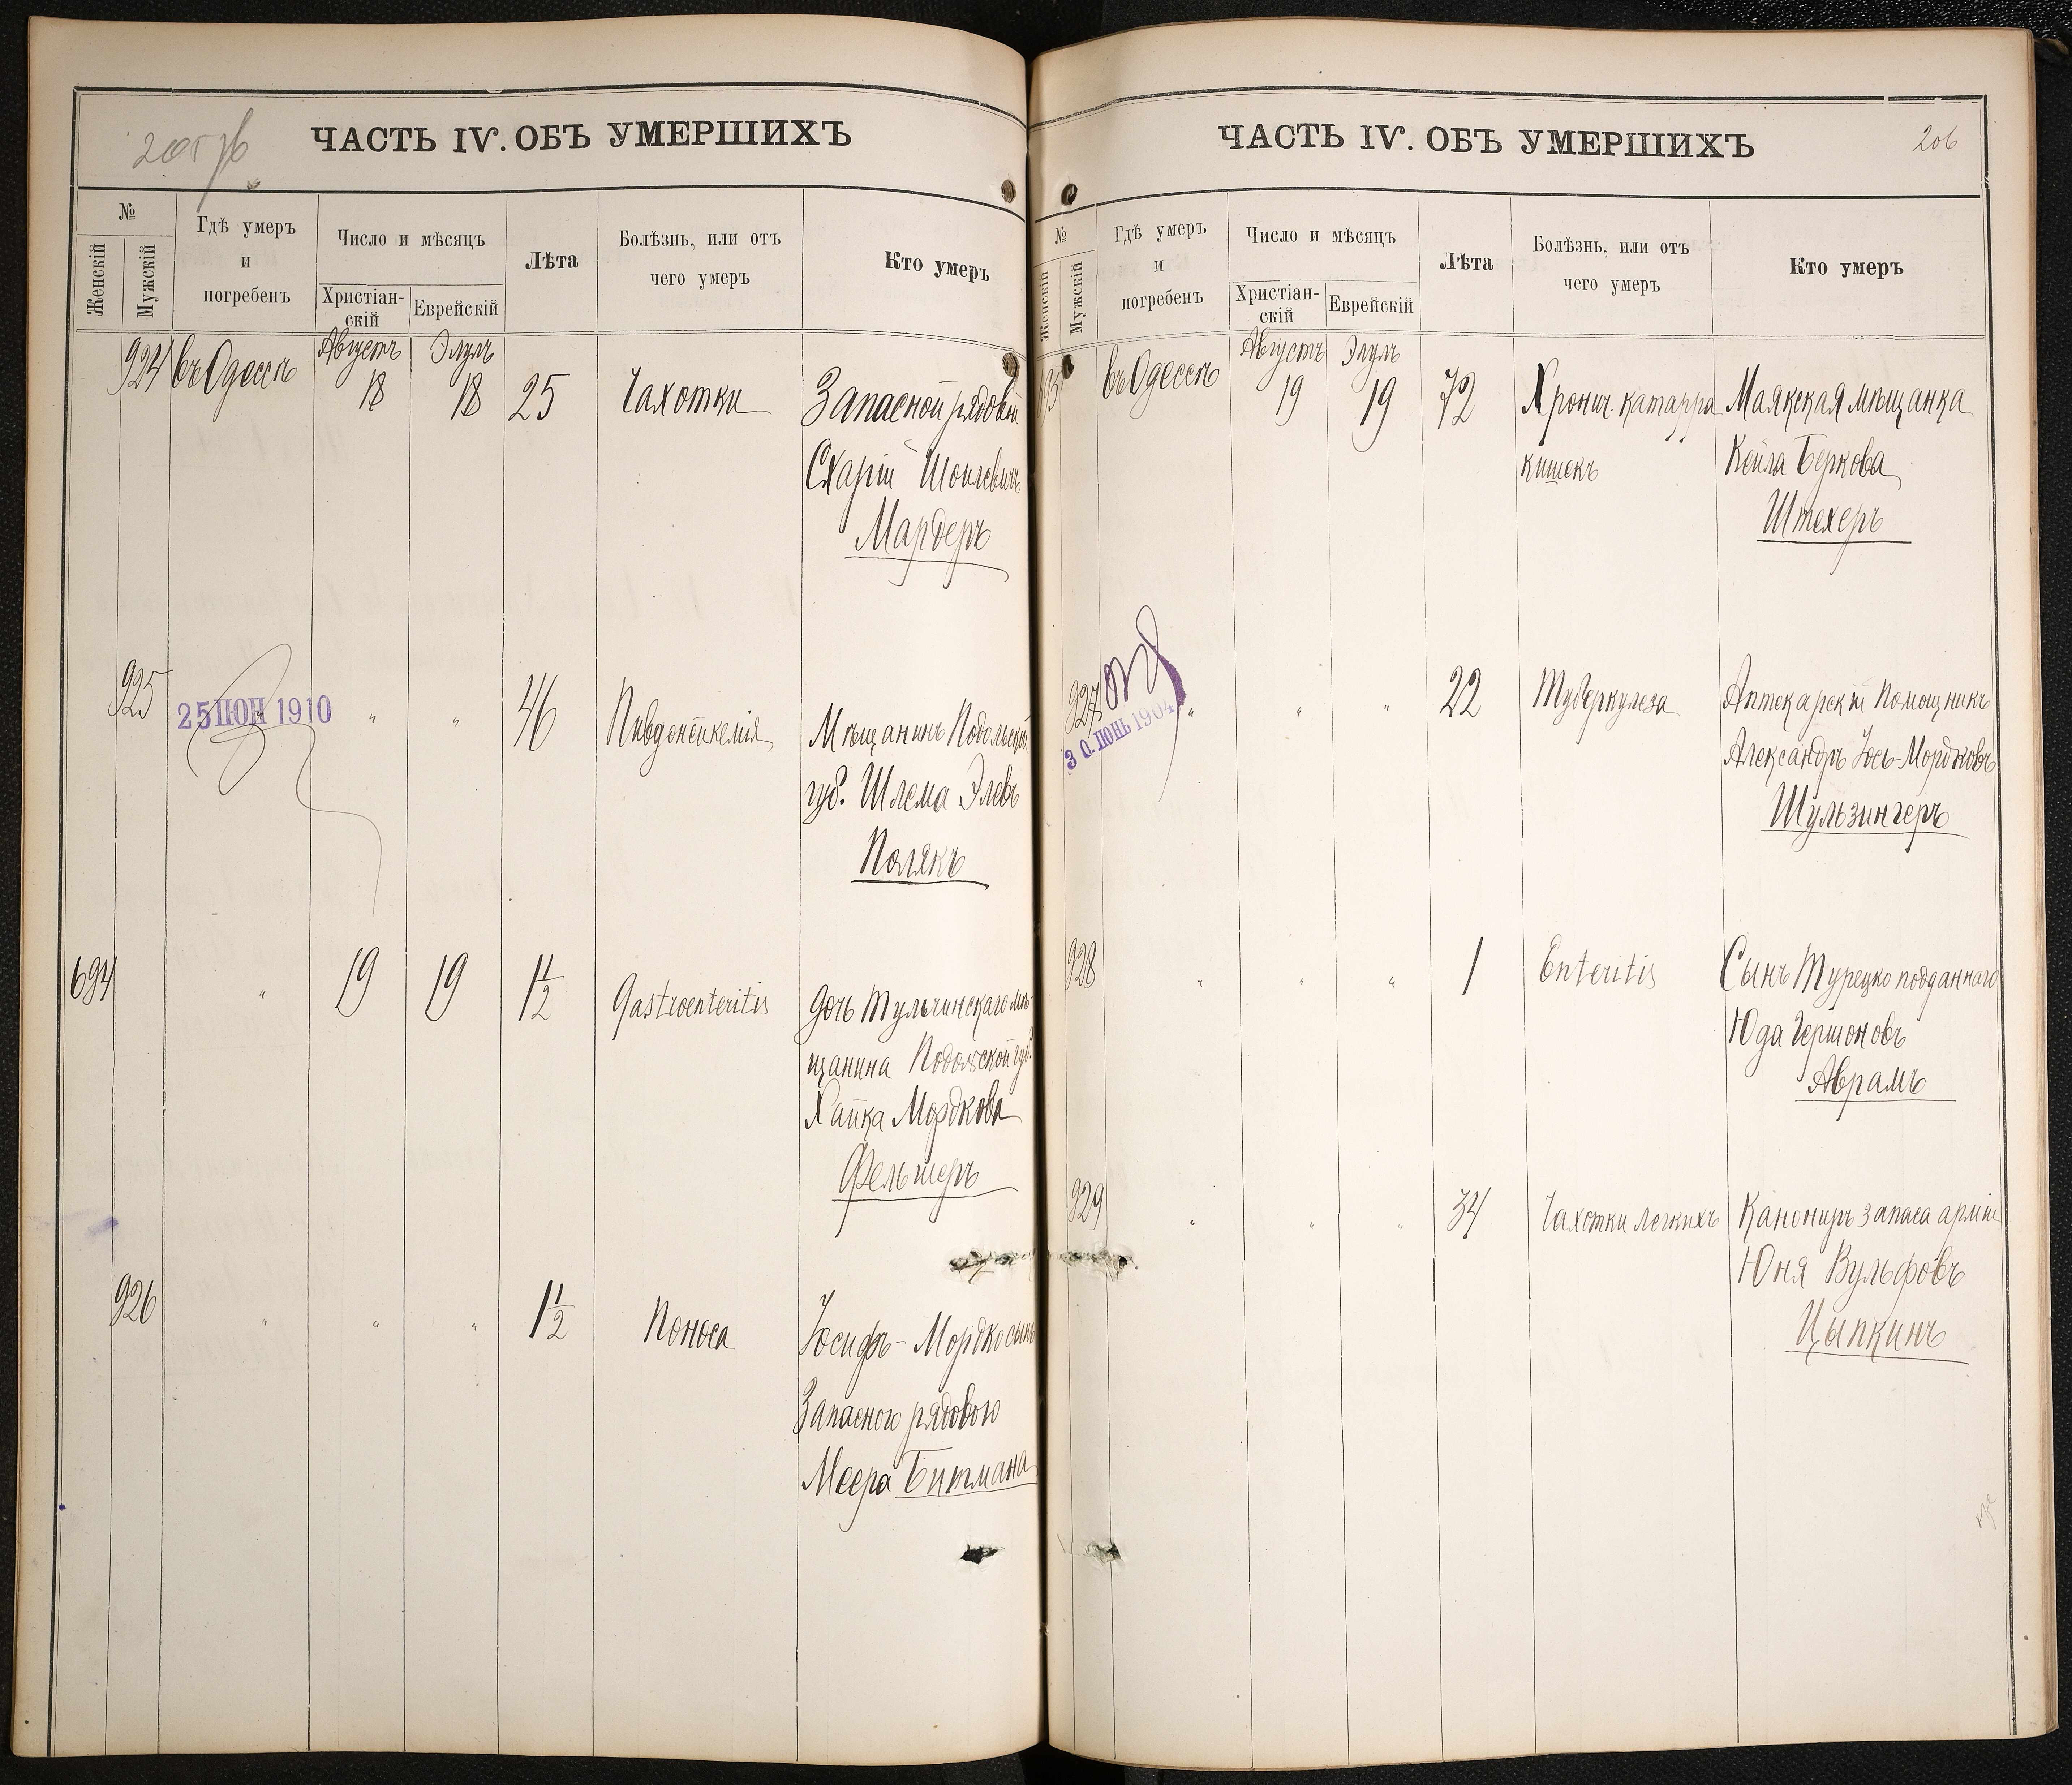 205 об
ЧАСТЬ IV. ОБЪ УМЕРШИХЪ
№
Женскій
Мужскій
Гдѣ умеръ
и
погребенъ
Число и мѣсяцъ
Христіан-
скій
Еврейскій
Лѣта
Болѣзнь, или отъ
чего умеръ
Кто умеръ
924 въ Одессѣ Августъ 18 Элулъ 18 25 Чахотки Запасной рядовой
Схарій Шоилевичъ
Мардеръ
925 " " " 46 Мѣщанинъ Подольской
25 ІЮН 1910
губ. Шлема Элевъ
Полякъ
694 " 19 19 1 1/2 Gastroenteritis Дочь Тульчинскаго мѣ-
щанина Подольской губ.
Хайка Мордкова
Фельшеръ
926 " " " 1 1/2 Поноса Іосифъ-Мордко сынъ
Запасного рядового
Меера Битмана
ЧАСТЬ IV. ОБЪ УМЕРШИХЪ
206
№
Женскій
Мужскій
Гдѣ умеръ
и
погребенъ
Число и мѣсяцъ
Христіан-
скій
Еврейскій
Лѣта
Болѣзнь, или отъ
чего умеръ
Кто умеръ
въ Одессѣ Августъ 19 Элулъ 19 72 Хронич. катарра Маякская мѣщанка
кишекъ Кейла Беркова
Штехеръ
927 " " " 22 Туберкулеза Аптекарскій Помощникъ
30 ІЮНЬ 1904
Александръ Іось-Мордковъ
Шульзингеръ
928 " " " 1 Enteritis Сынъ Турецко подданнаго
Юда Гершоновъ
Аврамъ
929 " " " 34 Чахотки легкихъ Канониръ запаса арміи
Юня Вульфовъ
Цыпкинъ